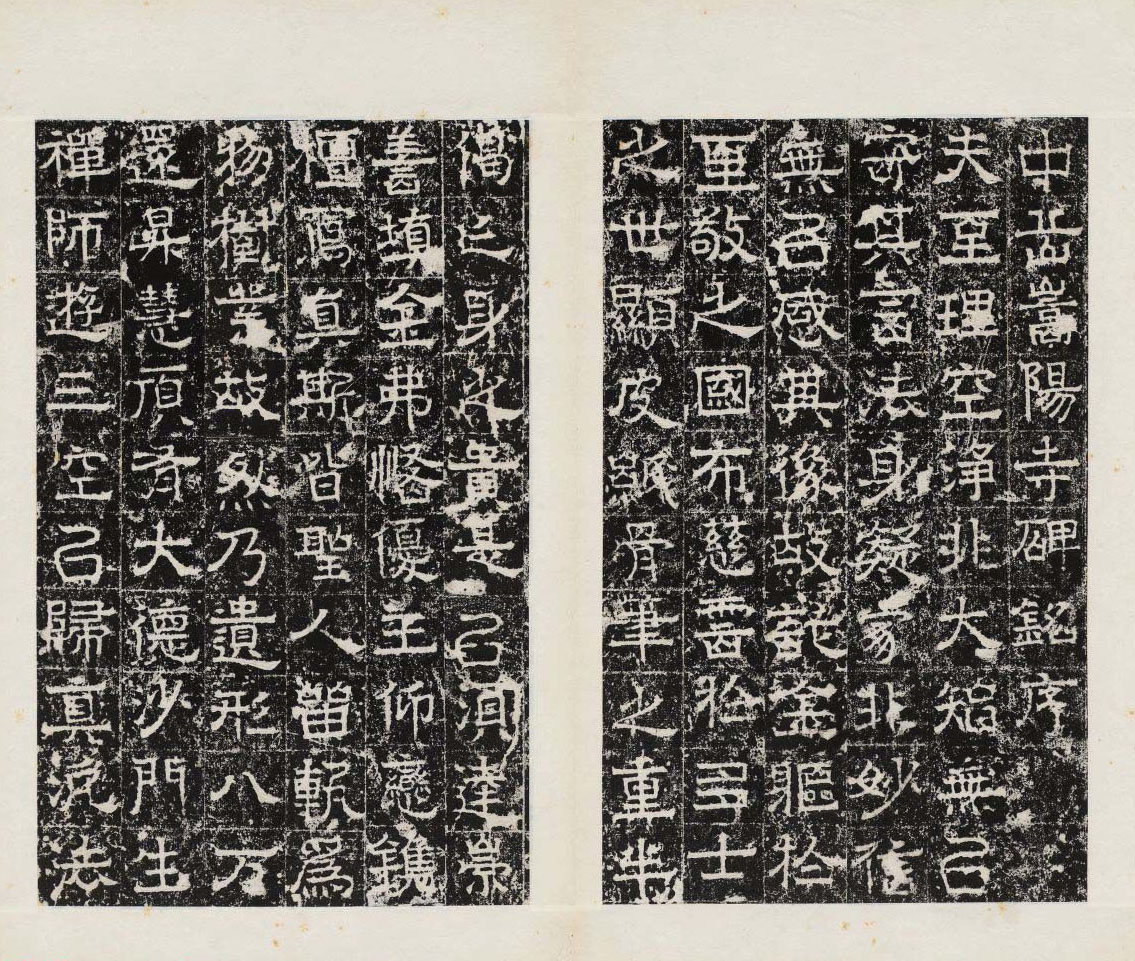 中岳嵩陽寺碑銘序
夫至理空淨非大智無以
其言法身凝寂非妙信
無以感其像故誕金軀於
至敬之國布慈雲於多士
之世顯皮紙骨筆之重半
偈亡身貴是以須達崇
善填金弗悋優主仰戀鐫
檀寫真斯皆聖人留軌為
物樹業故然乃遺形八万
還昇慧頂有大德沙門生
禪師遊三空以歸真汎法